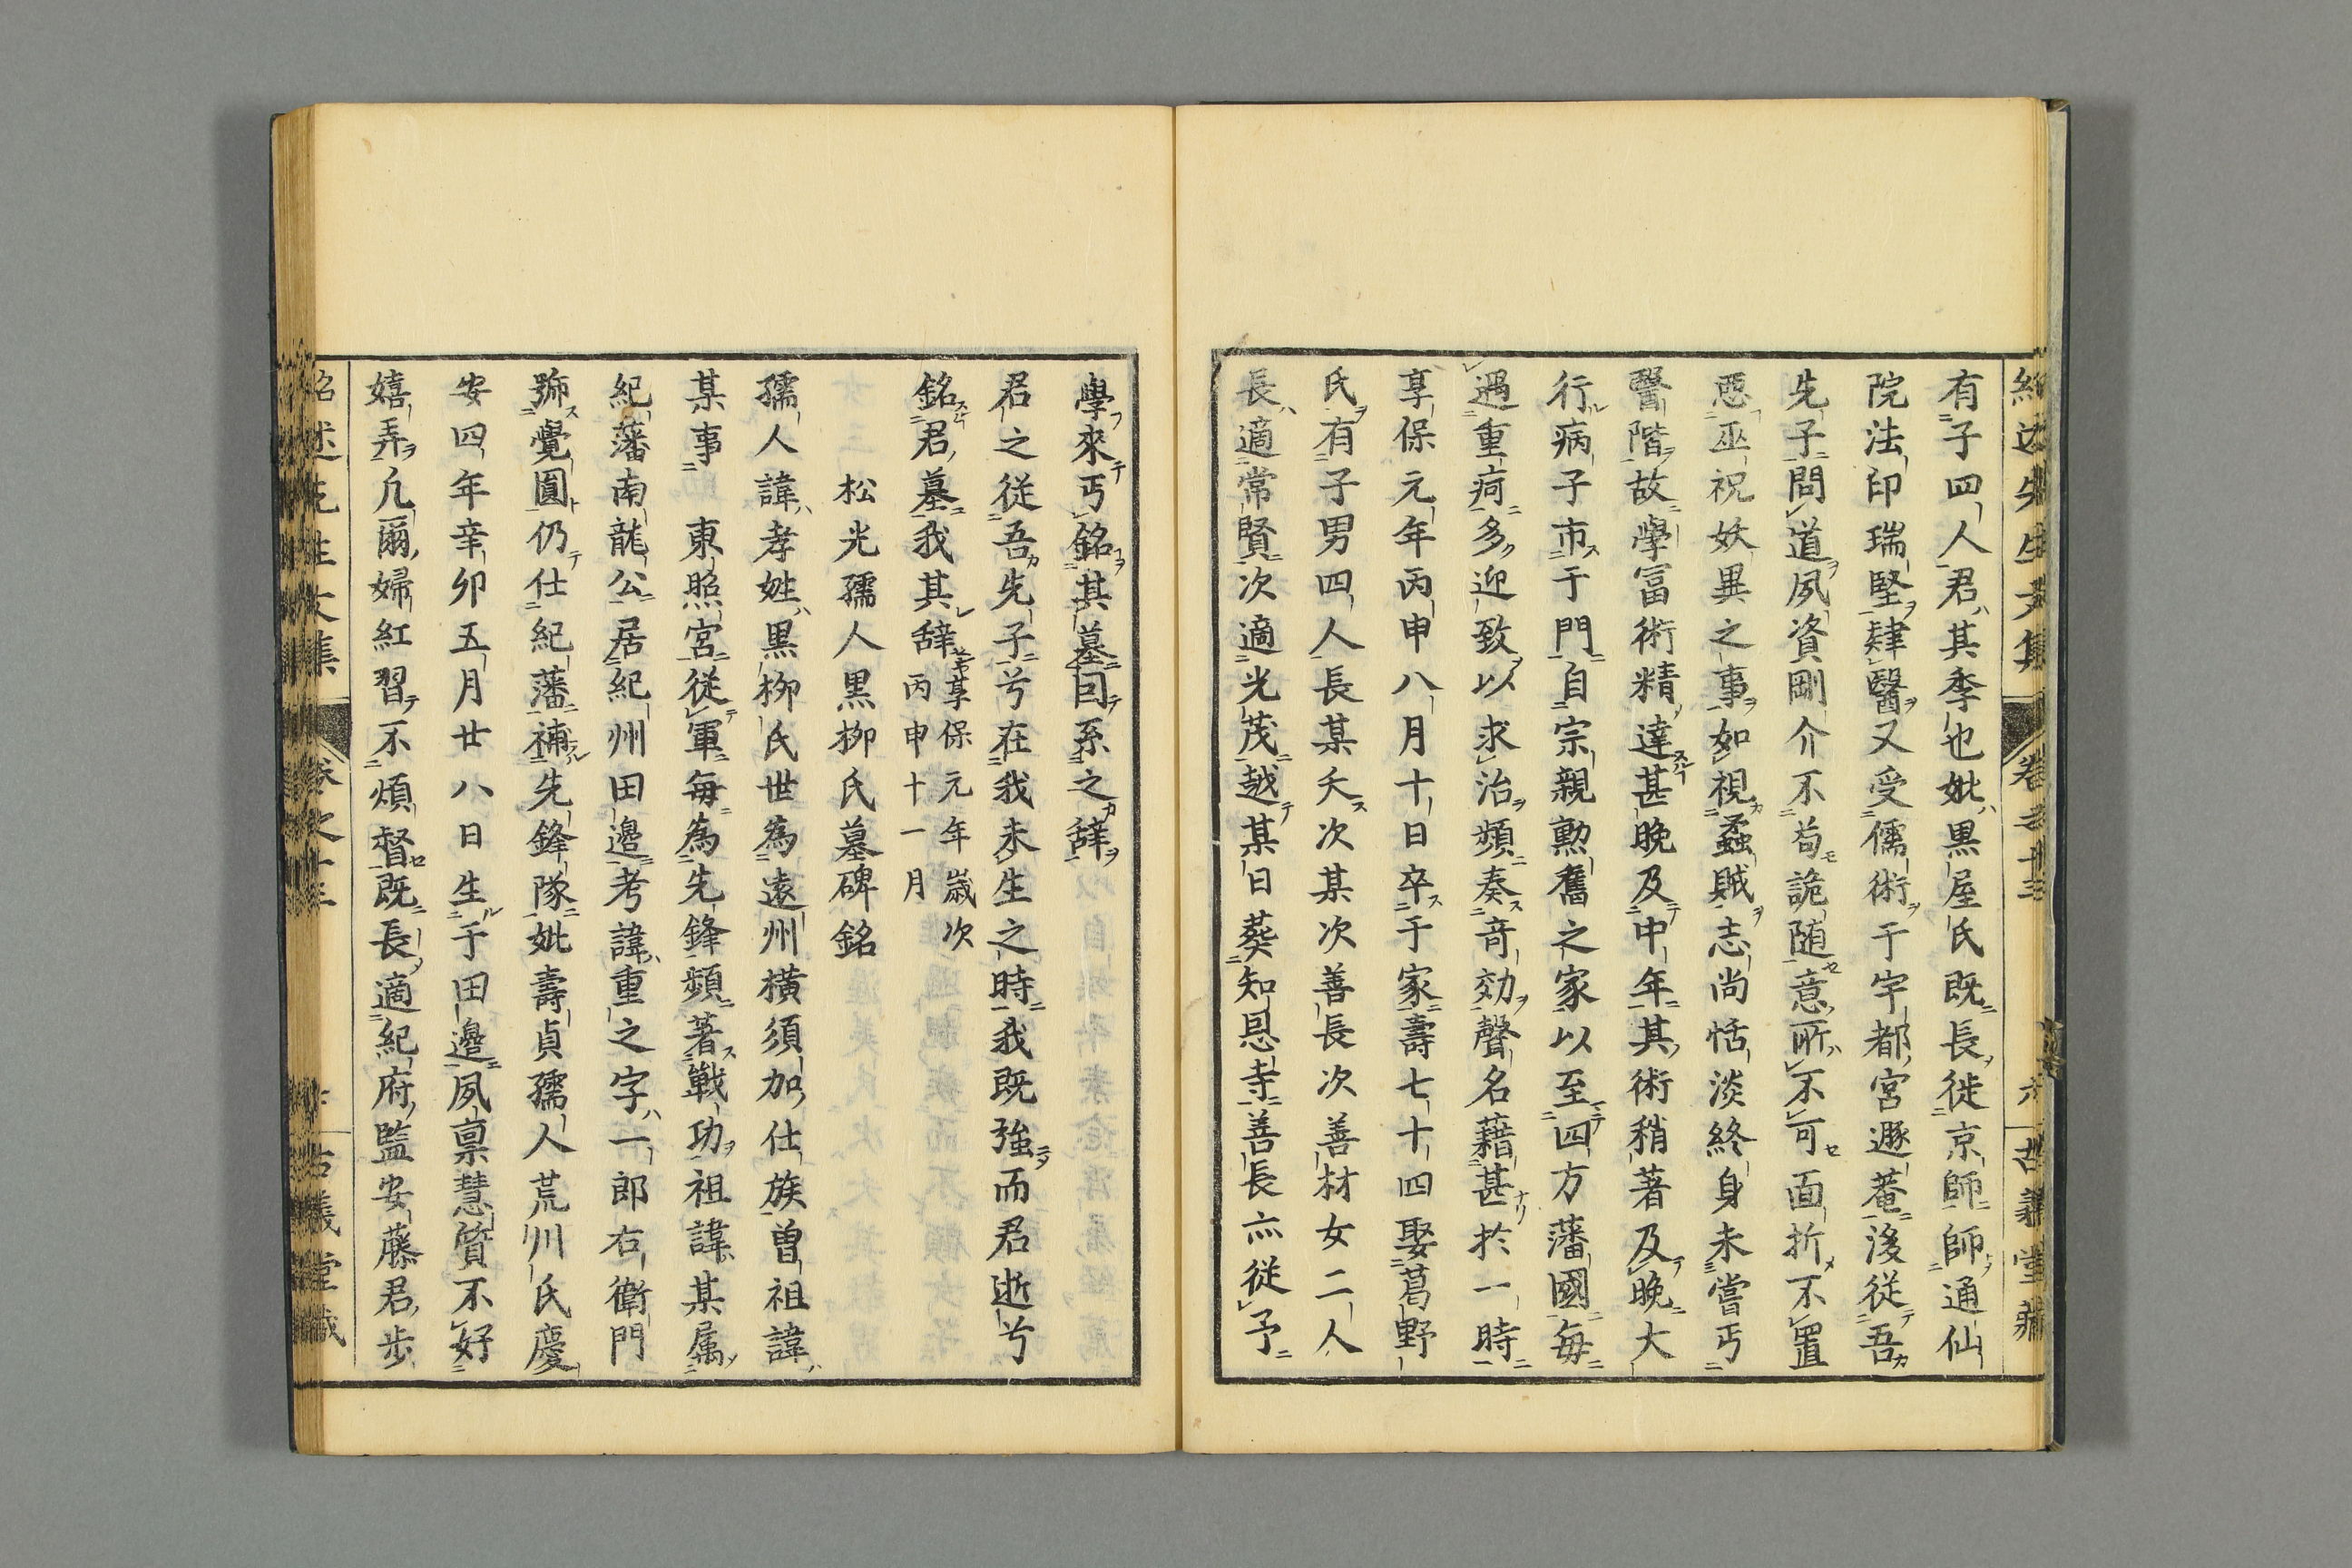 紹述先生文集 卷之十三 古義堂藏
有子四人君其季也妣黒屋氏既長徙京師師通仙
院法印瑞堅肄醫又受儒術于宇都宮遯菴後從吾
先子問道夙資剛介不苟詭随意所不可面折不置
惡巫祝妖異之事如視蟊賊志尚恬淡終身未嘗丐
醫階故學冨術精達甚晩及中年其術稍著及晩大
行病子市于門自宗親勲舊之家以至四方藩國毎
遇重疴多迎致以求治頻奏竒効聲名藉甚於一時
享保元年丙申八月十日卒于家壽七十四娶葛野
氏有子男四人長某夭次某次善長次善材女二人
長適常賢次適光茂越某日葬知恩寺善長亦從予
學來丐銘其墓囙系之辭
君之從吾先子兮在我未生之時我既強而君逝兮
銘君墓我其辭 享保元年歳次
丙申十一月
松光孺人黒柳氏墓碑銘
孺人諱孝姓黒柳氏世為遠州横須加仕族曽祖諱
某事 東照宮從軍毎為先鋒頻著戰功祖諱某属
紀藩南龍公居紀州田邉考諱重之字一郎右衛門
號覺圓仍仕紀藩補先鋒隊妣壽貞孺人荒川氏慶
安四年辛卯五月廿八日生于田邉夙禀慧質不好
嬉弄凢爾婦紅習不煩督既長適紀府監安藤君歩
紹述先生文集 卷之十三 古義堂藏